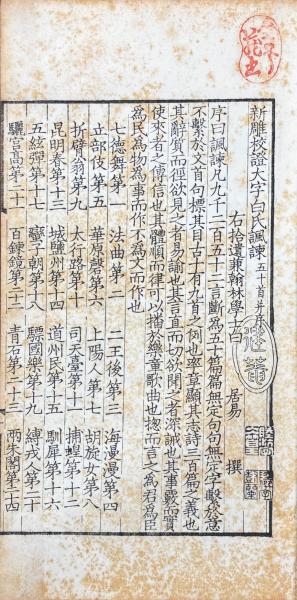 新雕校證大字白氏諷諫五十首并序
右拾遺兼翰林學士白居易撰
序曰諷諫凡九千二百五十二言斷為五十篇篇無定句句無定字繫於意
不繫於文首句標其目古十有九首之例也卒章顯其志詩三百篇之義也
其辭質而徑欲見之者易諭也其言直而切欲聞之者深誡也其事覈而實
使來者之傳信也其體順而律可以播於樂章歌曲也揔而言之為君為臣
為民為物為事而作不為文而作也
七德舞第一 法曲第二 二王後第三 海漫漫第四
立部伎第五 華原磬第六 上陽人第七 胡旋女第八
折臂翁第九 太行路第十 司天臺第十一 捕蝗第十二
昆明春第十三 城鹽州第十四 道州民第十五 馴犀第十六
五絃彈第十七 蠻子朝第十八 驃國樂第十九 縛戎人第二十
驪宮高第二十一 百鍊鏡第二十二 青石第二十三 兩朱閣第二十四